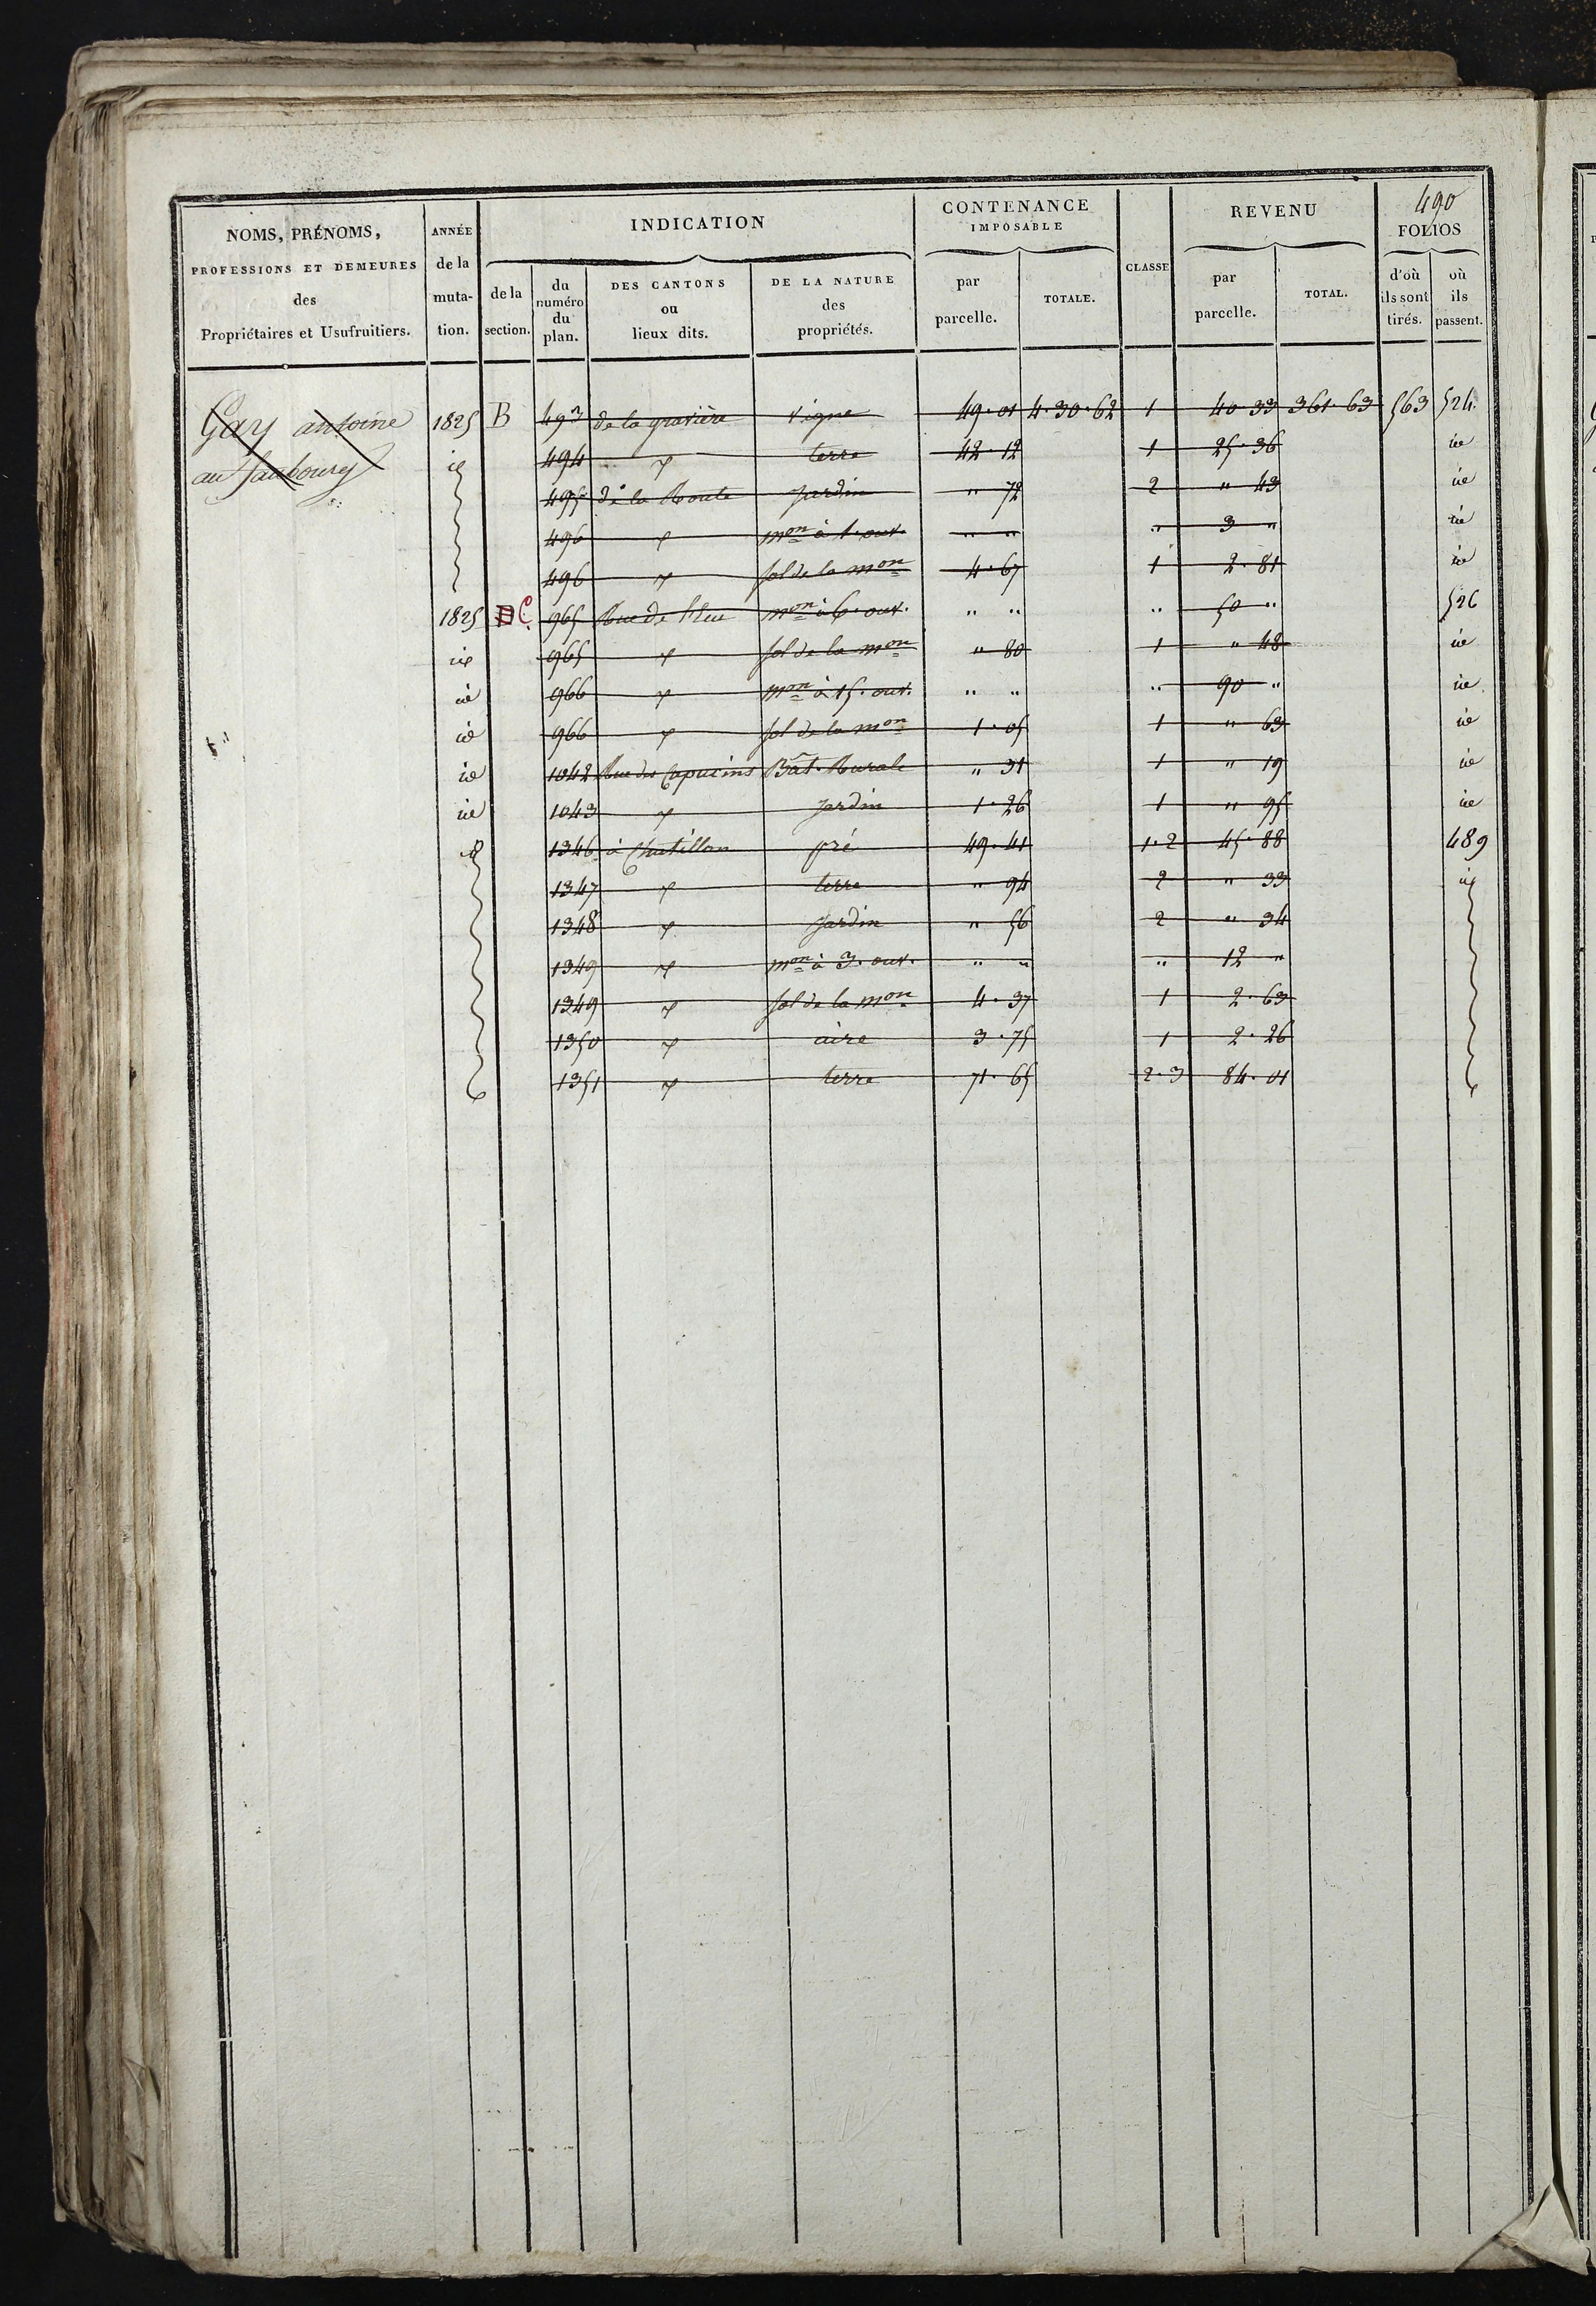 490
NOMS, PRÉNOMS, PROFESSIONS ET DEMEURES des Propriétaires et Usufruitiers.
ANNÉE de la muta- tion.
INDICATION
de la section.
du numéro du plan.
DES CANTONS ou lieux dits.
DE LA NATURE des propriétés.
CONTENANCE IMPOSABLE
par parcelle.
TOTALE.
CLASSE
REVENU
par parcelle.
TOTAL.
FOLIOS
d'où ils sont tirés.
où ils passent.
Gay antoine 1825 B 493 de la gravière vigne 49.01 4.30.62 1 40 33 361.63 563 524
au faubourg id 494 terre 42.12 1 25.36 id
495 de la Route Jardin " 72 2 " 43 id
496 mon à 1. ouv. " " " 3 " id
496 sol de la mon 4.67 1 2.81 id
1825 D C 965 mon à 6. ouv. " " " 50 " 526
id 965 sol de la mon " 80 1 " 48 id
id 966 mon à 15. ouv. " " " 90 " id
id 966 sol de la mon 1.05 1 " 63 id
id 1042 Rue des Capucins Bât. Rurale " 31 1 " 19 id
id 1043 Jardin 1.26 1 " 95 id
id 1346 à Chatillon pré 49.41 1.2 45.88 489
1347 terre " 94 2 " 33 id
1348 Jardin " 56 2 " 34
1349 mon à 3. ouv. " " " 12 "
1349 sol de la mon 4.37 1 2.63
1350 aire 3.75 1 2.26
1351 terre 71.65 2.3 84.01